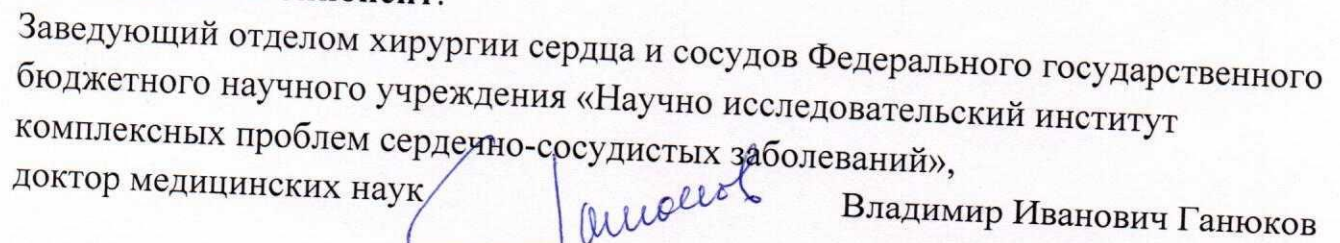 Заведующий отделом хирургии сердца и сосудов Федерального государственного
бюджетного научного учреждения «Научно исследовательский институт
комплексных проблем сердечно-сосудистых заболеваний»,
доктор медицинских наук
Владимир Иванович Ганюков